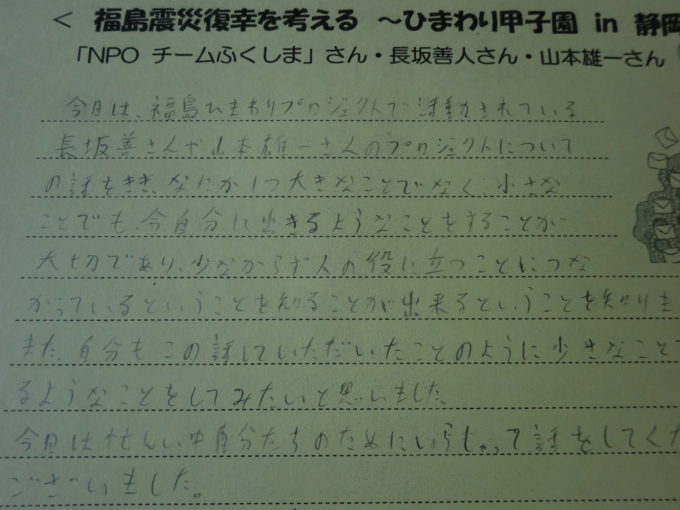 < 福島震災復幸を考える ～ひまわり甲子園 in 静岡
「NPO チームふくしま」さん・長坂善人さん・山本雄一さん
今日は、福島ひまわりプロジェクトで活動されている
長坂善さんや山本雄一さんのプロジェクトについて
の話をきき、なにか1つ大きなことでなく、小さな
ことでも、今自分に出きるようなことをすることが
大切であり、少なからず人の役に立つことにつな
がっているということを知ることが出来るということを知りま
また、自分もこの話していただいたことのように少さなことで
るようなことをしてみたいと思いました。
今日は忙しい中自分たちのためにいらしゃって話をしてくだ
ございました。